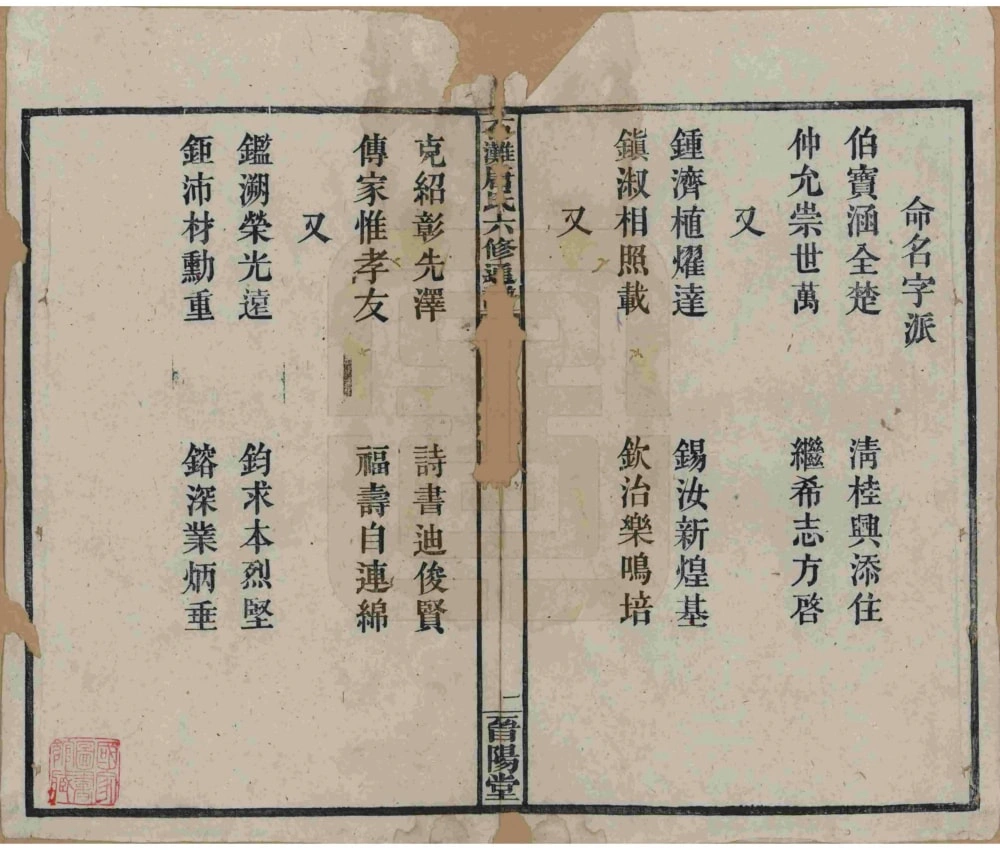 命名字派
伯寶涵全楚 淸桂興添住
仲允崇世萬 繼希志方啓
又
鍾濟植燿達 錫汝新煌基
鎭淑相照載 欽治樂鳴培
又
灘唐氏六修通譜
一
晉陽堂
克紹彰先澤 詩書迪俊賢
傳家惟孝友 福壽自連綿
又
鑑溯榮光遠 鈞求本烈堅
鉅沛材勳重 鎔深業炳垂
國家圖書館藏